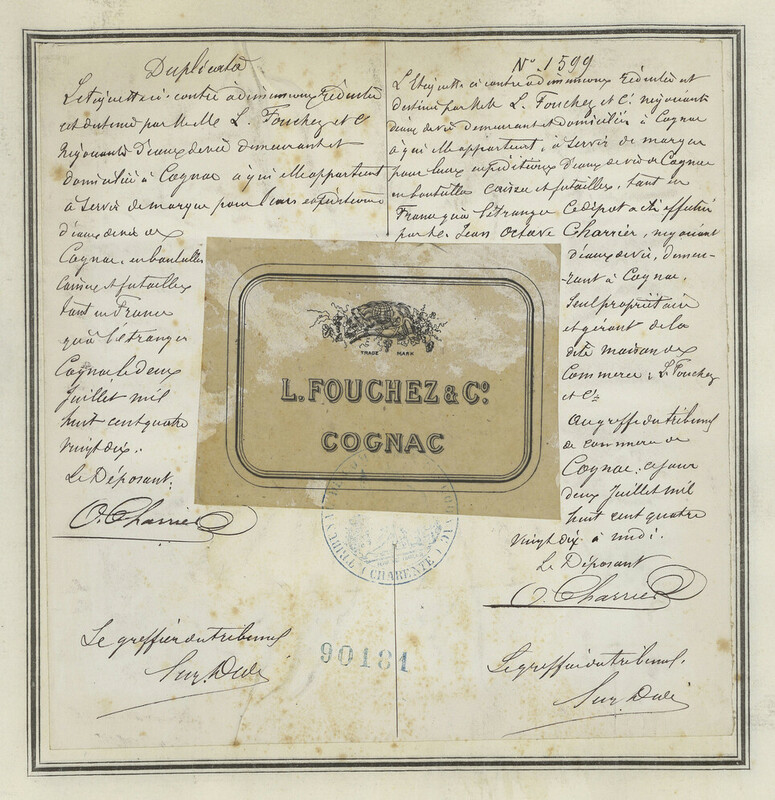 Duplicata
L'étiquette ci-contre a dimensions réduites
est destinée par M. M. L. Fouchez et Cie
négociants d'eaux de vie demeurant et
domiciliés à Cognac à qui elle appartient
à servir de marque pour leurs expéditions
d'eaux de vie de
Cognac, en bouteilles
caisses et futailles
tant en France
qu'à l'étranger
Cognac le deux
Juillet mil
huit cent quatre
vingt dix.
Le Déposant:
O. Charrier
Le greffier du tribunal
No 1599
L'étiquette ci contre a dimensions réduites est
destinée par M. M. L. Fouchez et Cie négociants
d'eaux de vie demeurant et domiciliés à Cognac
à qui elle appartient, à servir de marque
pour leurs expéditions d'eaux de vie de Cognac
en bouteilles caisses et futailles, tant en
France qu'à l'étranger Ce dépôt a été effectué
par Mr. Jean Octave Charrier, négociant
d'eaux de vie, demeu-
rant à Cognac,
seul propriétaire
et gérant de la
dite maison de
Commerce: L. Fouchez
et Cie
au greffe du tribunal
de commerce de
Cognac, ce jour
deux Juillet mil
huit cent quatre
vingt dix à midi.
Le Déposant
O. Charrier
Le greffier du tribunal.
TRADE MARK
L. FOUCHEZ & Co.
COGNAC
TRIBUNAL
COGNAC
(CHARENTE)
90181